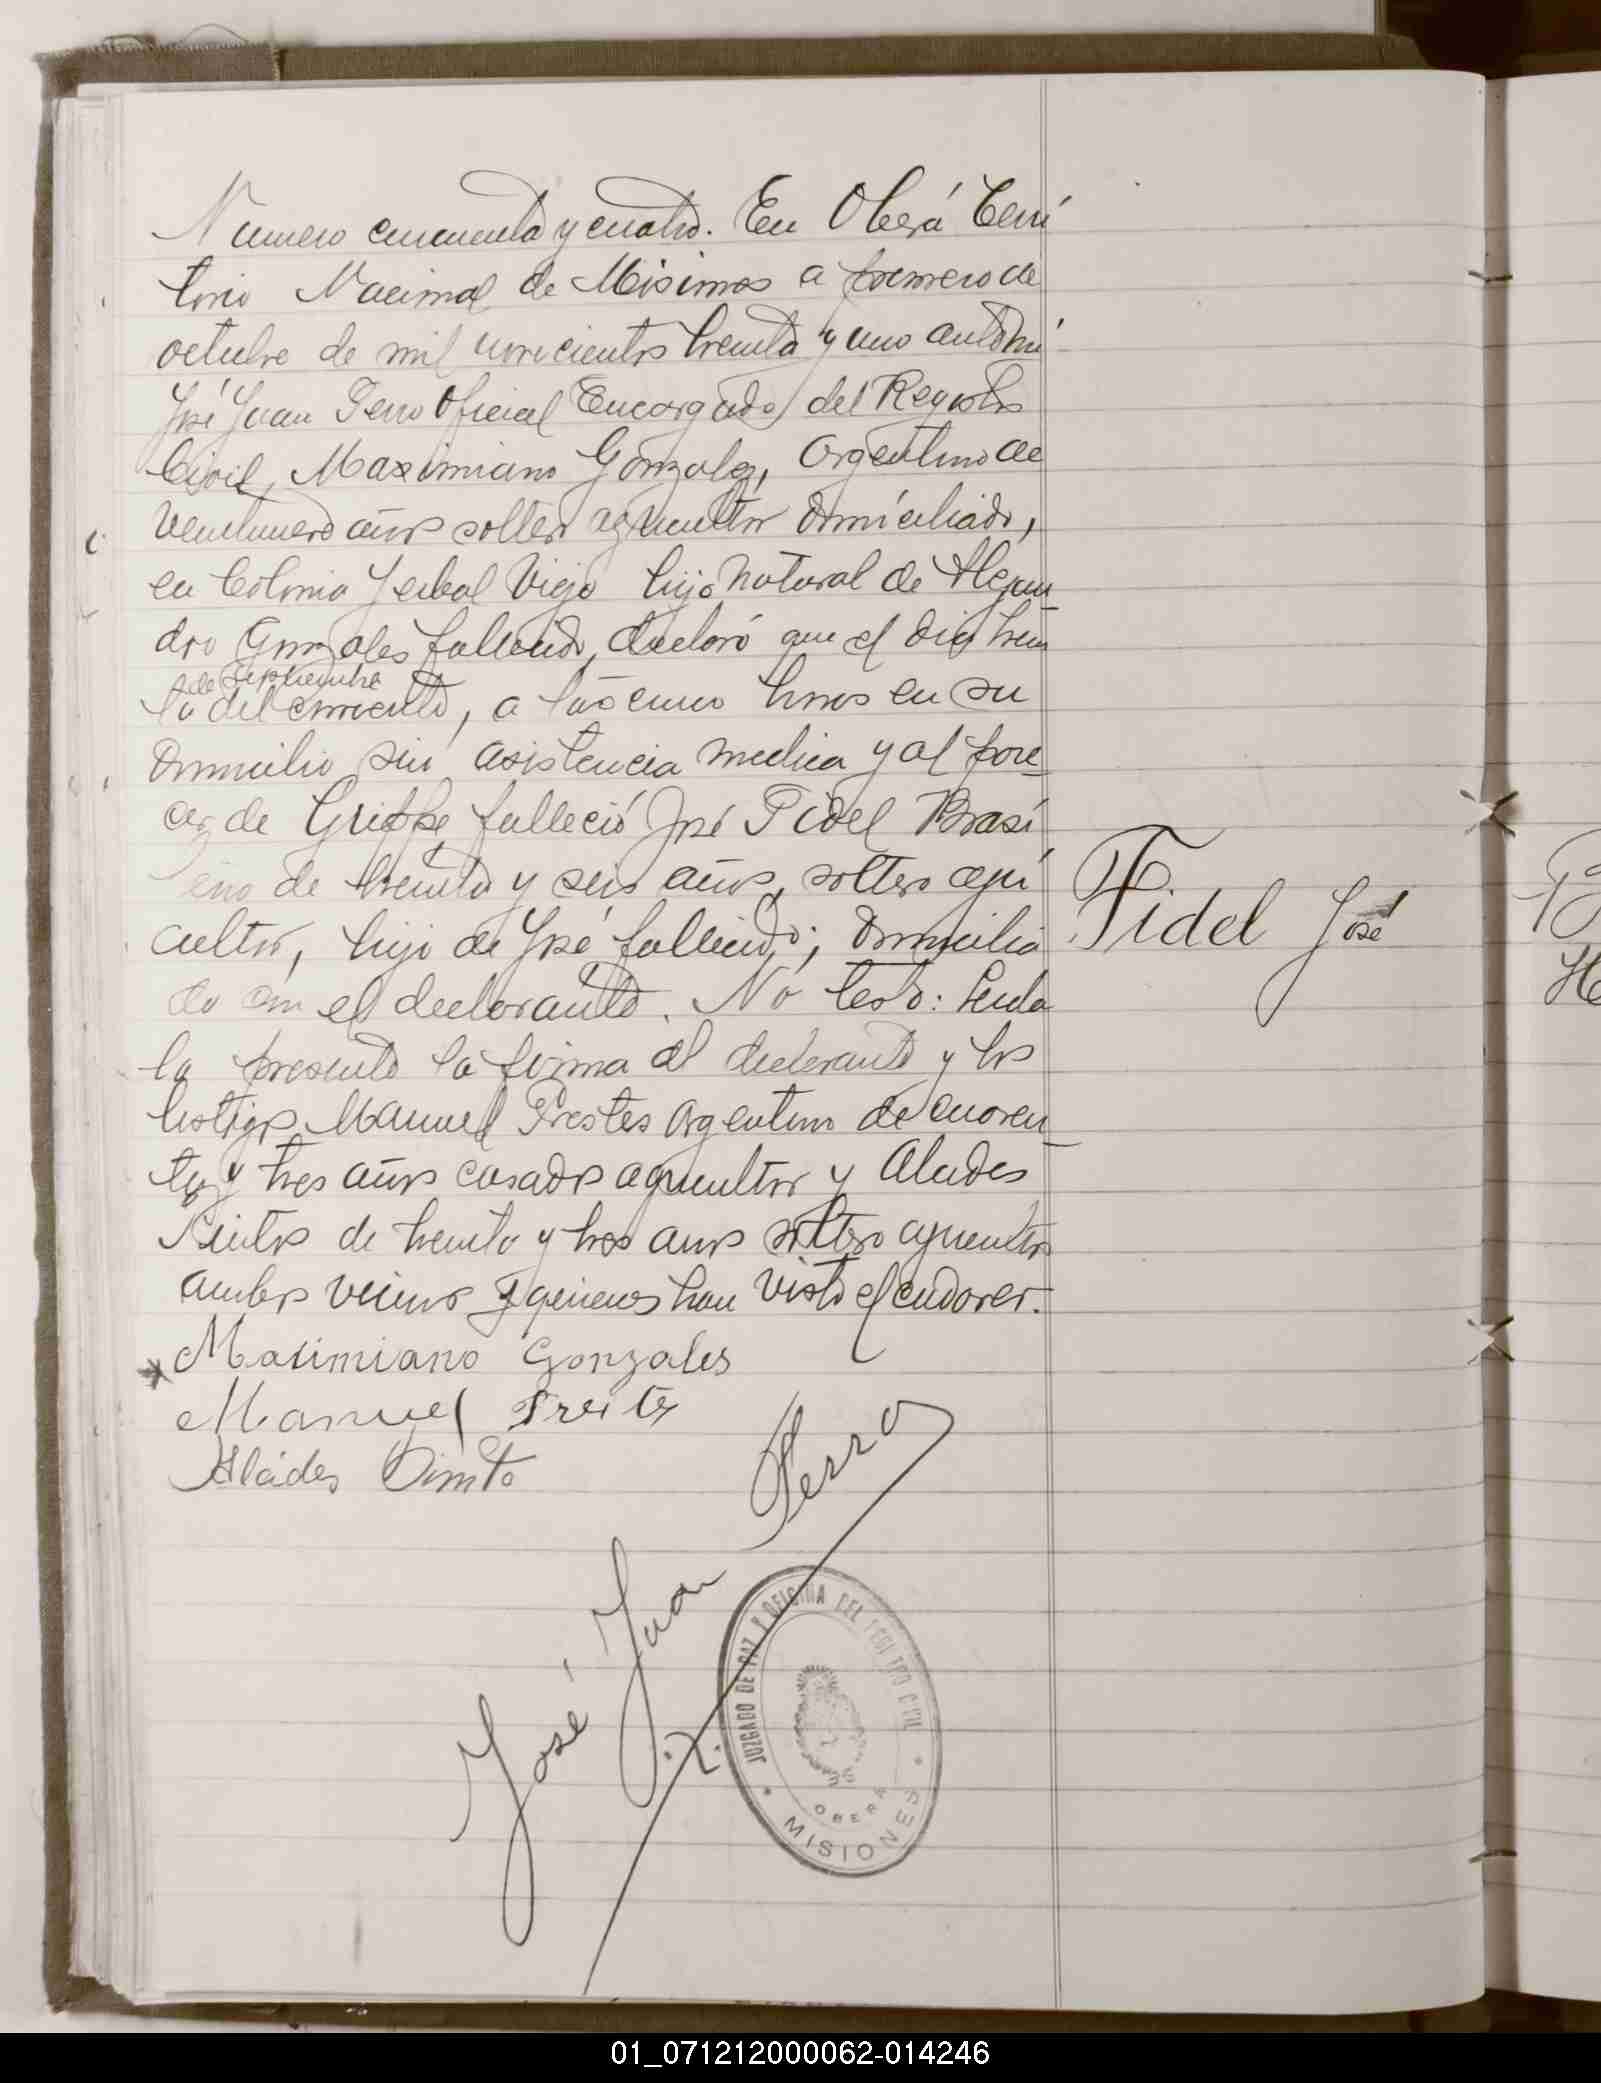 Numero cincuenta y cuatro. En Oberá Terri
torio Nacional de Misiones a primero de
octubre de mil novecientos treinta y uno ante mi
José Juan Perro Oficial Encargado del Registro
Civil, Maximiano Gonzalez, Argentino de
veintinueve años soltero agricultor domiciliado,
en Colonia Yerbal Viejo hijo natural de Alejan
dro Gonzales fallecido, declaró que el dia trein
de Septiembre
ta del corriente, a las cinco horas en su
domicilio sin asistencia medica y al pare-
cer de Grippe falleció José Fidel Brasi
eno de treinta y seis años, soltero agri
cultor, hijo de José fallecido; domicilia
do con el declarante. No testó: Leida
la presente la firma el declarante y los
testigos Manuel Prestes Argentino de cuaren_
ta y tres años casado agricultor y Alcides
de treinta y tres anos soltero agricultor
ambos vecinos y quienes han visto el cadaver.
Maximiano Gonzales
Manuel Prestes
Alcides
José Juan Perro
Fidel José
JUZGADO DE PAZ Y OFICINA DEL REGISTRO CIVIL
OBERA
MISIONES
01_071212000062-014246